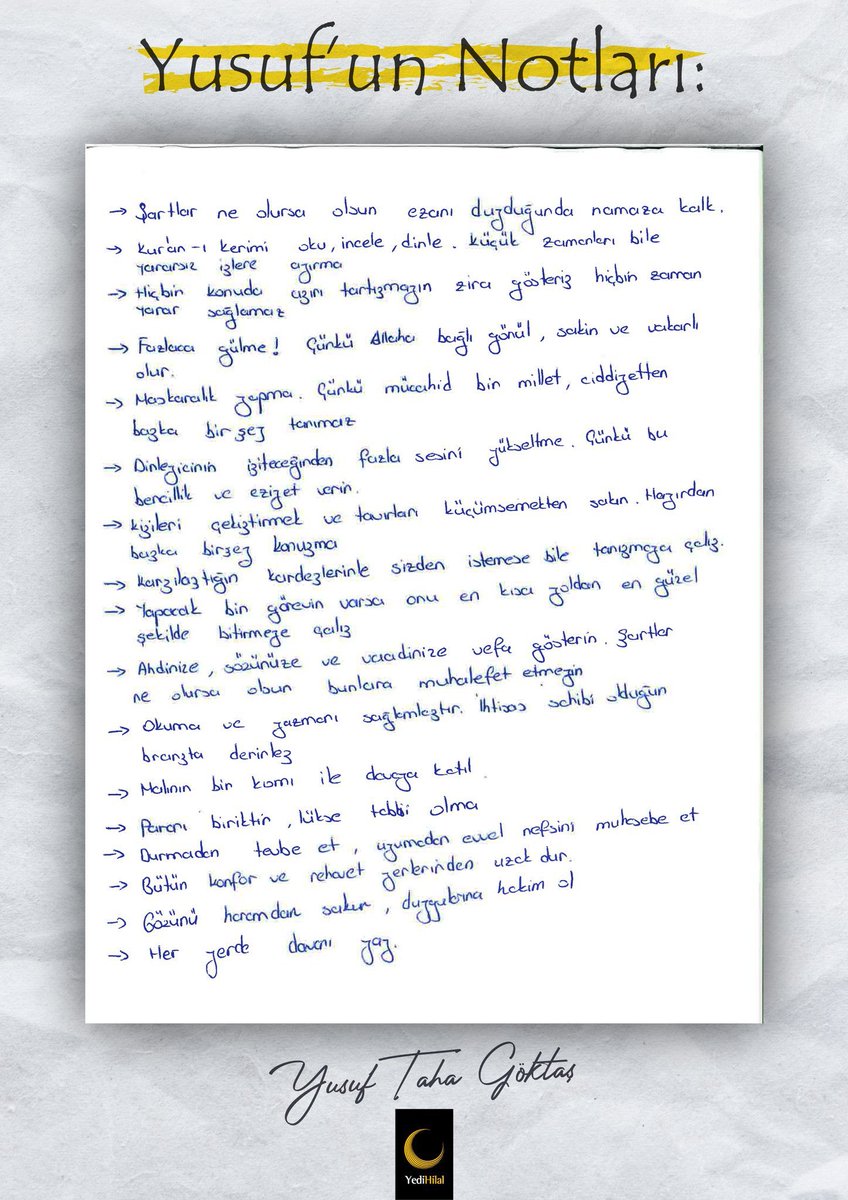 Yusuf'un Notları:
→ Şartlar ne olursa olsun ezanı duyduğunda namaza kalk.
→ Kur'an-ı kerimi oku, incele, dinle. küçük zamanları bile
yararsız işlere ayırma
→ Hiçbir konuda aşırı tartışmayın zira gösteriş hiçbir zaman
yarar sağlamaz
→ Fazlaca gülme! Çünkü Allaha bağlı gönül, sakin ve vakarlı
olur.
→ Maskaralık yapma. Çünkü mücahid bir millet, ciddiyetten
başka bir şey tanımaz
→ Dinleyicinin işiteceğinden fazla sesini yükseltme. Çünkü bu
bencillik ve eziyet verir.
→ kişileri çekiştirmek ve tavırları küçümsemekten sakın. Hayırdan
başka birşey konuşma
→ karşılaştığın kardeşlerinle sizden istemese bile tanışmaya çalış.
→ Yapacak bir görevin varsa onu en kısa yoldan en güzel
şekilde bitirmeye çalış
→ Ahdinize, sözünüze ve vaadinize vefa gösterin. Şartlar
ne olursa olsun bunlara muhalefet etmeyin
→ Okuma ve yazmanı sağlamlaştır. İhtisas sahibi olduğun
branşta derinleş
→ Malının bir kısmı ile davaya katıl.
→ Paranı biriktir, lükse tabi olma
→ Durmadan tevbe et, uyumadan evvel nefsini muhasebe et
→ Bütün konfor ve rehavet yerlerinden uzak dur.
→ Gözünü haramdan sakın, duygularına hakim ol
→ Her yerde davanı yay.
Yusuf Taha Göktaş
YediHilal